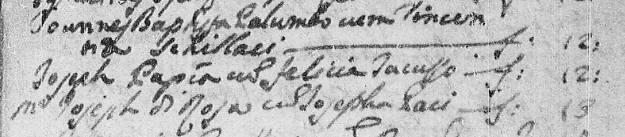 Joannes Baptista Palumbo cum Vincen
tia Schillaci — f: 12:
Joseph Papia cu Felicia Iacusso — f: 12:
mr Joseph di Rosa cu Josepha Laci — f: 13